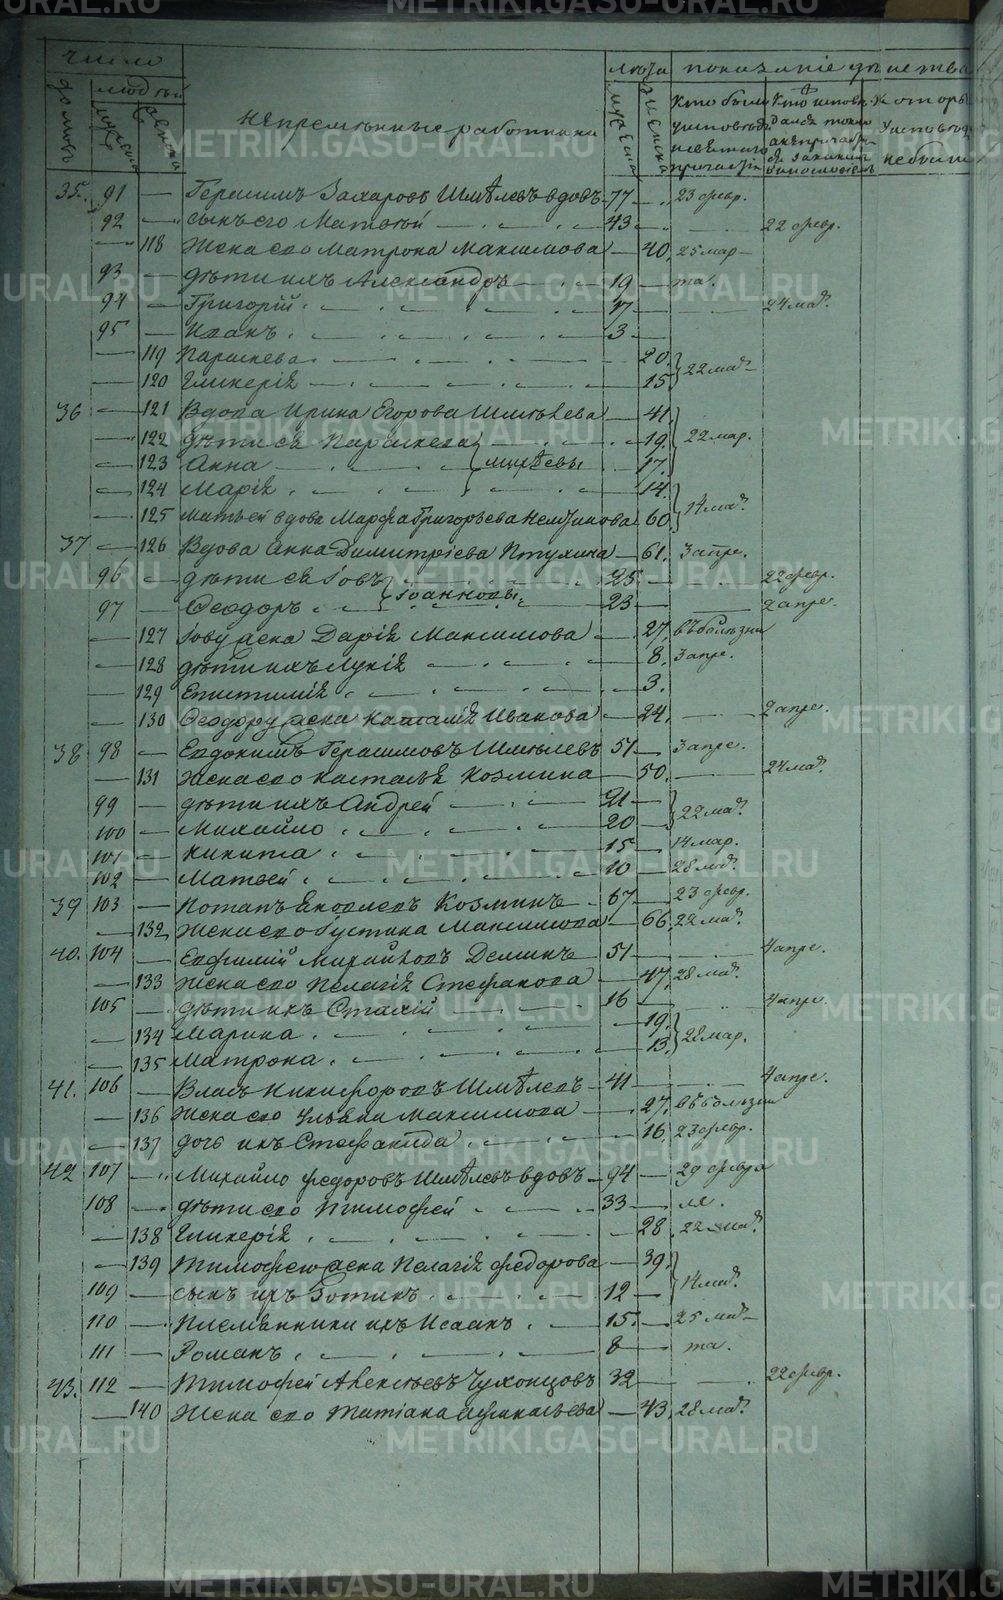 число
лѣта
показаніе дѣйства
домовъ
людей
мужеска
женска
непремѣнные работники
мужеска
женска
Кто были у исповѣди и святаго причастія
Кто исповѣдался токмо а не причастился
Которые у исповѣди не были
35. 91 — Герасимъ Захаровъ Шмелевъ вдовъ 77 — 23 февр.
92 — сынъ его Матвей — 43 — 22 февр.
— 118 Жена его Матрона Максимова — 40 25 мар—
93 — дѣти ихъ Александръ — 19 — та.
94 — Григорій — 17 — 24 мар.
95 — Иванъ — 3 —
— 119 Параскева — 20.
— 120 Гликерія — 15 } 22 мар.
36 — 121 Вдова Ирина Егорова Шмелева — 41
— 122 дѣти ея Параскева — 19. } 22 мар.
— 123 Анна — { — 17.
— 124 Марія — 14.
— 125 Матьей вдова Марфа Григорьева — 60 } 14 мар.
37 — 126 Вдова Анна Димитріева Птухина — 61. 3 апре.
96 — дѣти ея Іовъ } Іоанновы — 25 — 22 февр.
97 — Ѳеодоръ — 23 — 2 апре.
— 127 Іову жена Дарія Максимова — 27. въ болѣзни
— 128 дѣти ихъ Лукія — 8. 3 апре.
— 129 Епистимія — 3.
— 130 Ѳеодору жена Наталія Иванова — 24. — 2 апре.
38 98 — Евдокимъ Герасимовъ Шмелевъ 51 — 3 апре.
— 131 Жена его Наталья Козмина — 50. — 24 мар.
99 — дѣти ихъ Андрей — 21 —
100 — Михайло — 20 — } 22 мар.
101 — Никита — 15 — 14 мар.
102 — Матвей — 10 — 28 мар.
39 103 — Потапъ Яковлевъ Козминъ — 67 — 23 февр.
— 132 Жена его Іустина Максимова — 66 22 мар.
40. 104 — Евфимій Михайловъ Деминъ 51 — 4 апре.
— 133 Жена его Пелагія Стефанова — 47. 28 мар.
105 — дѣти ихъ Стахій — 16 — 4 апре.
— 134 Марина — 19.
— 135 Матрона — 13. } 28 мар.
41. 106 — Власъ Никифоровъ Шмѣлевъ — 41 — 4 апре.
— 136 Жена его Ульяна Максимова — 27. въ болѣзни
— 137 дочь ихъ Стефанида — 16. 23 февр.
42 107 — Михайло Федоровъ Шмѣлевъ вдовъ — 94 — 29 февра
108 — дѣти его Тимофей — 33 — ля.
— 138 Гликерія — 28 22 мар.
— 139 Тимофею жена Пелагія Федорова — 39
109 — сынъ ихъ Фотинъ — 12 — } 14 мар.
110 — Племянники ихъ Исаакъ — 15. — 25 мар—
111 — Романъ — 8 — та.
43. 112 — Тимофей Алексѣевъ Чухонцовъ 32 — 22 февр.
— 140 Жена его Татіана Афанасьева — 43. 28 мар.